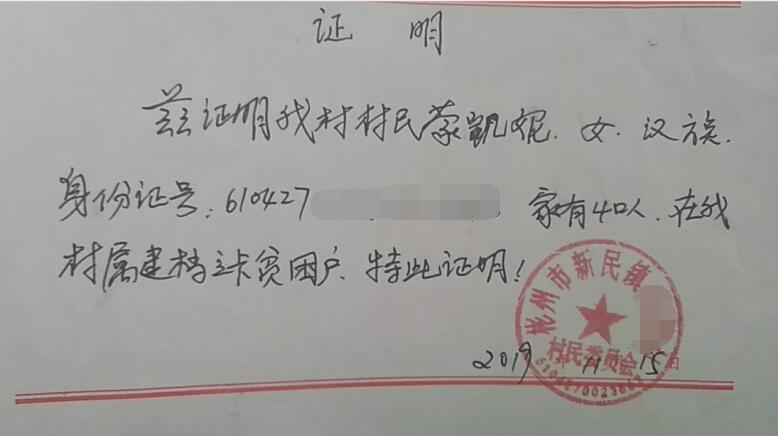 证 明
兹证明我村村民蒙凯妮.女.汉族.
身份证号:610427 家有4口人.在我
村属建档立卡贫困户.特此证明!
彬州市新民镇
村民委员会
2019年11月15日